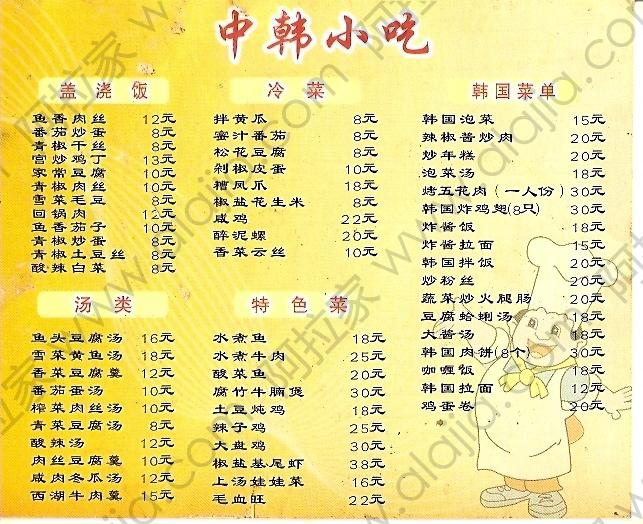 中韩小吃
盖浇饭
鱼香肉丝 12元
番茄炒蛋 8元
青椒干丝 8元
宫炒鸡丁 13元
家常豆腐 10元
青椒肉丝 10元
雪菜毛豆 8元
回锅肉 12元
鱼香茄子 10元
青椒炒蛋 8元
青椒土豆丝 8元
酸辣白菜 8元
冷菜
拌黄瓜 8元
蜜汁番茄 8元
松花豆腐 8元
剁椒皮蛋 10元
糟凤爪 18元
椒盐花生米 8元
咸鸡 22元
醉泥螺 20元
香菜云丝 10元
韩国菜单
韩国泡菜 15元
辣椒酱炒肉 20元
炒年糕 20元
泡菜汤 18元
烤五花肉（一人份）30元
韩国炸鸡翅(8只) 30元
炸酱饭 18元
炸酱拉面 15元
韩国拌饭 20元
炒粉丝 20元
蔬菜炒火腿肠 20元
豆腐蛤蜊汤 18元
大酱汤 18元
韩国肉饼(8个) 30元
咖喱饭 18元
韩国拉面 12元
鸡蛋卷 20元
汤类
鱼头豆腐汤 16元
雪菜黄鱼汤 18元
香菜豆腐羹 12元
番茄蛋汤 10元
榨菜肉丝汤 10元
青菜豆腐汤 8元
酸辣汤 12元
肉丝豆腐羹 10元
咸肉冬瓜汤 12元
西湖牛肉羹 15元
特色菜
水煮鱼 18元
水煮牛肉 25元
酸菜鱼 20元
腐竹牛腩煲 30元
土豆炖鸡 18元
辣子鸡 25元
大盘鸡 30元
椒盐基尾虾 38元
上汤娃娃菜 16元
毛血旺 22元
阿拉家 www.alajia.com